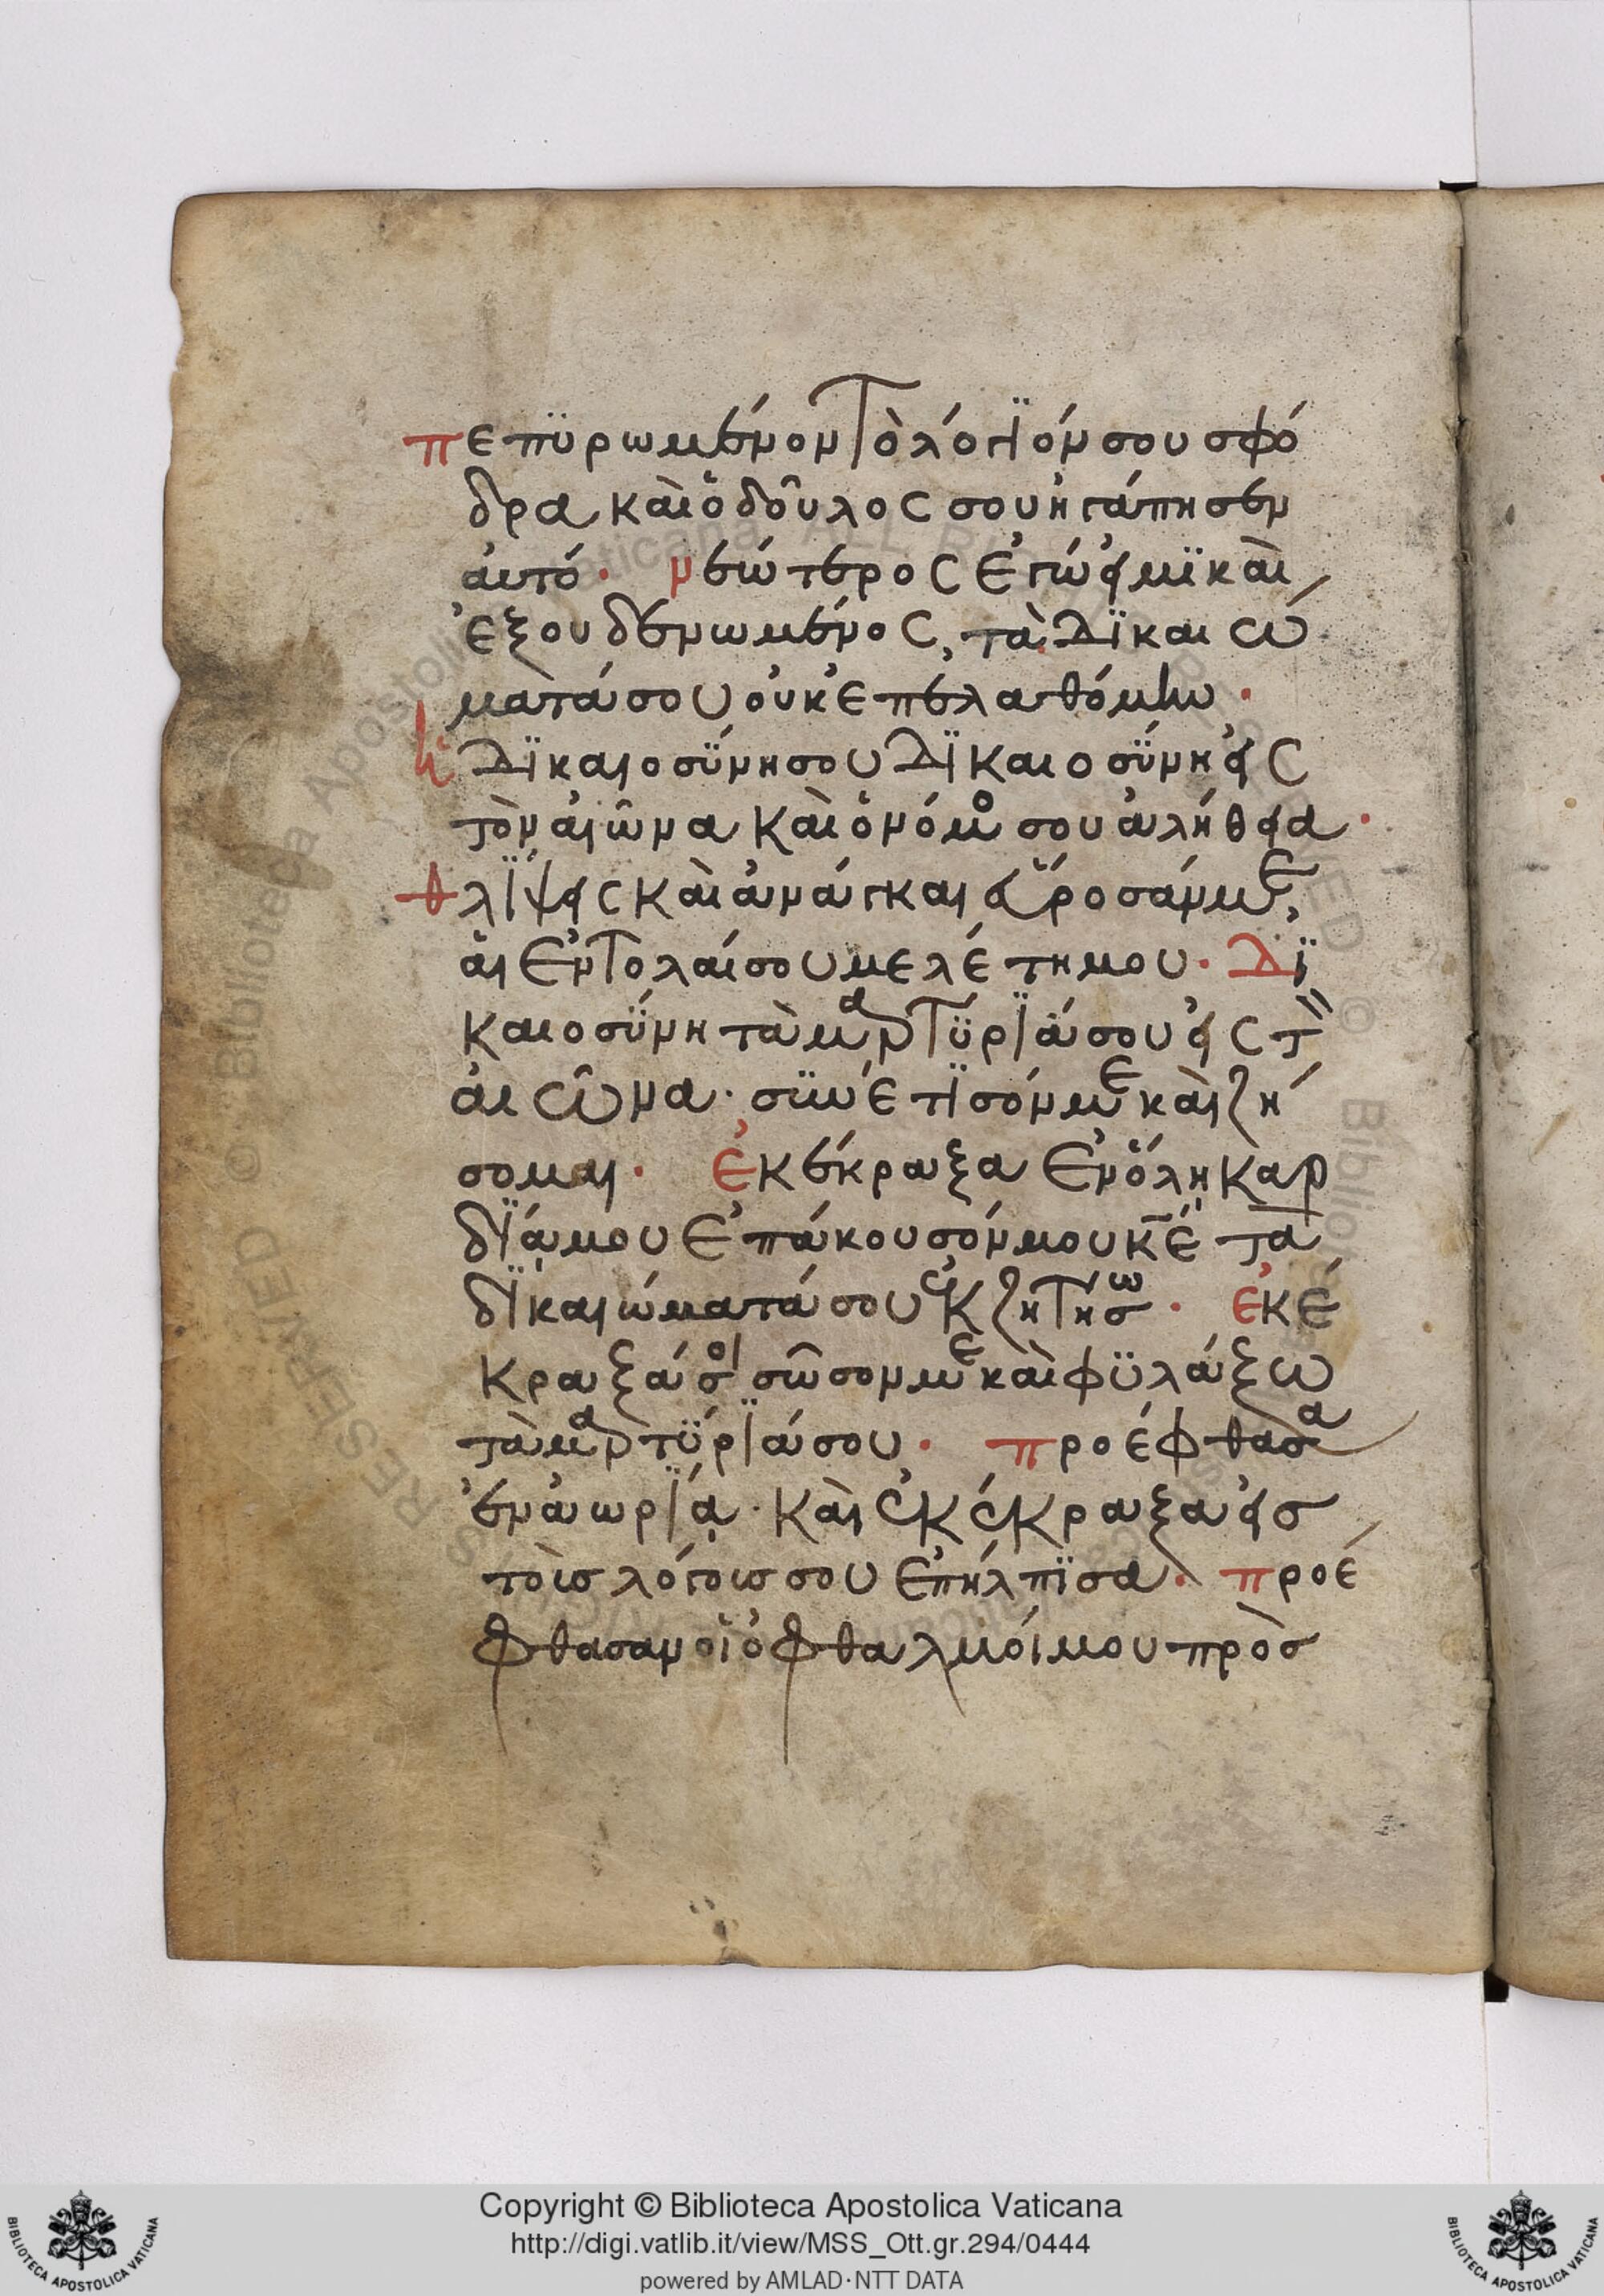 πεπϋρωμένον τὸ λόγϊόν σου σφό
δρα καὶ ὁ δοῦλος σου ἠγάπησεν
ἀυτό · νεώτερος ἐγώ εἰμϊ καὶ
ἐξουδενωμένος, τὰ δϊκαιώ
ματά σου οὐκ ἐπελαθόμην ·
ἡ δϊκαιοσΰνη σου δϊκαιοσΰνη εἰς
τὸν αἰῶνα καὶ ὁ νόμος σου ἀλήθεια ·
θλΐψεις καὶ ἀνάγκαι εὕροσάν με,
ἁι ἐντολαί σου μελέτη μου · δϊ
καιοσΰνη τὰ μαρτΰρϊά σου εἰς τ
ἀιῶνα · σϋνέτϊσόν με καὶ ζή
σομαι · ἐκέκραξα ἐν ὅλῃ καρ
δΐᾳ μου ἐπάκουσόν μου κ̅ε̅ τὰ
δϊκαιώματά σου ἐκζητήσω · ἐκέ
κραξά σοι σῶσον με καὶ φϋλάξω
τὰ μαρτΰρϊά σου · προέφθασα
ἐν ἀωρΐᾳ · καὶ ἐκέκραξα εἰσ
τοὺσ λόγουσ σου ἐπήλπϊσα · προέ
φθασαν οἱ ὀφθαλμόι μου πρὸσ
Copyright © Biblioteca Apostolica Vaticana
http://digi.vatlib.it/view/MSS_Ott.gr.294/0444
powered by AMLAD·NTT DATA
BIBLIOTECA APOSTOLICA VATICANA
BIBLIOTECA APOSTOLICA VATICANA